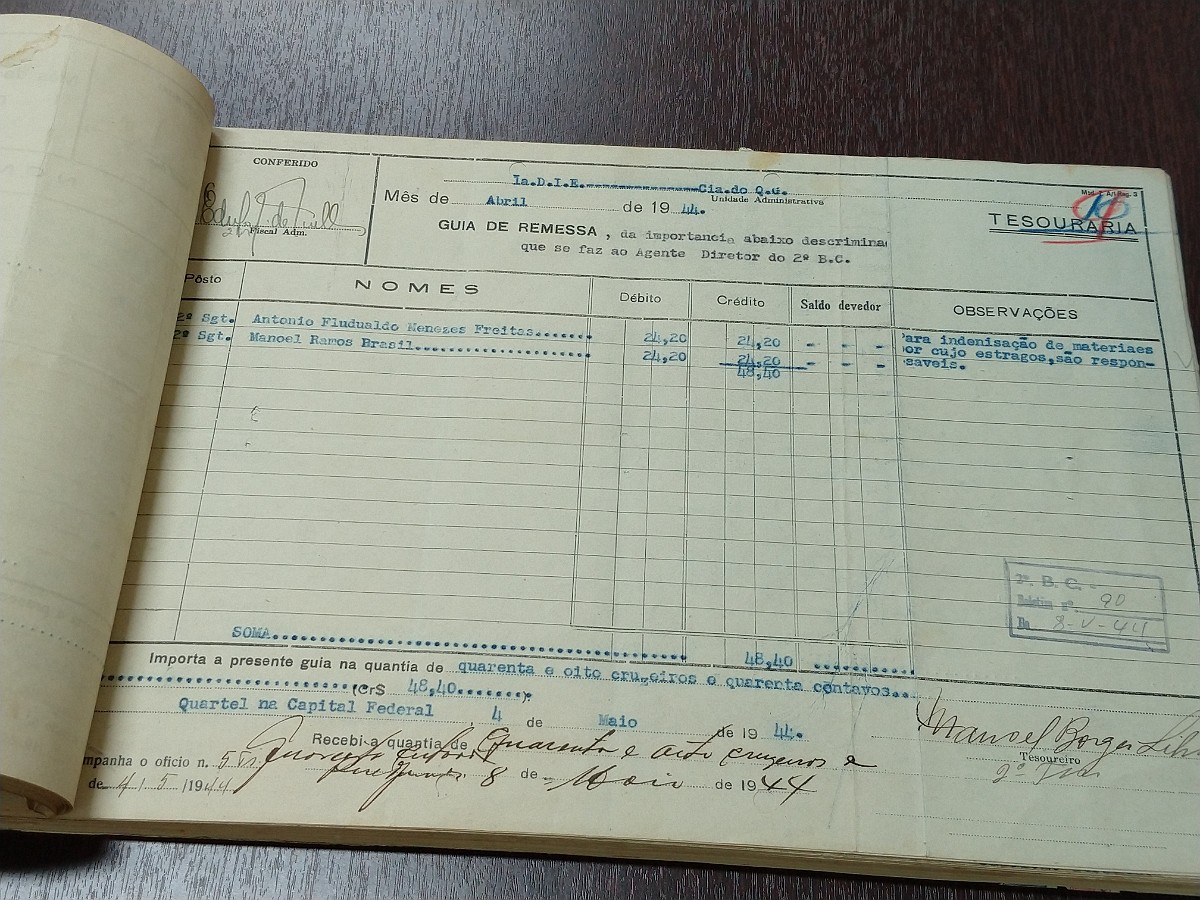 CONFERIDO
Fiscal Adm.
Ia.D.I.E. Cia.do Q.G.
Mês de Abril de 19 44. Unidade Administrativa
GUIA DE REMESSA , da importancia abaixo descrimina
que se faz ao Agente Diretor do 2º B.C.
TESOURARIA
Pôsto NOMES Débito Crédito Saldo devedor OBSERVAÇÕES
2º Sgt. Antonio Fludualdo Menezes Freitas...... 24,20 24,20 - - - ara indenisação de materiaes
2º Sgt. Manoel Ramos Brasil................... 24,20 24,20 - - - or cujo estragos,são respon-
48,40 saveis.
2º. B. C. -
Boletim nº. 90
De 8-V-44
SOMA 48,40
Importa a presente guia na quantia de quarenta e oito cruzeiros e quarenta centavos...
(Cr$ 48,40........).
Quartel na Capital Federal , 4 de Maio de 19 44.
Recebi a quantia de Quarenta e oito cruzeiros e
quarenta centavos
mpanha o oficio n.
8 de Maio de 1944
de 4/5/1944
Manoel Borges
Tesoureiro